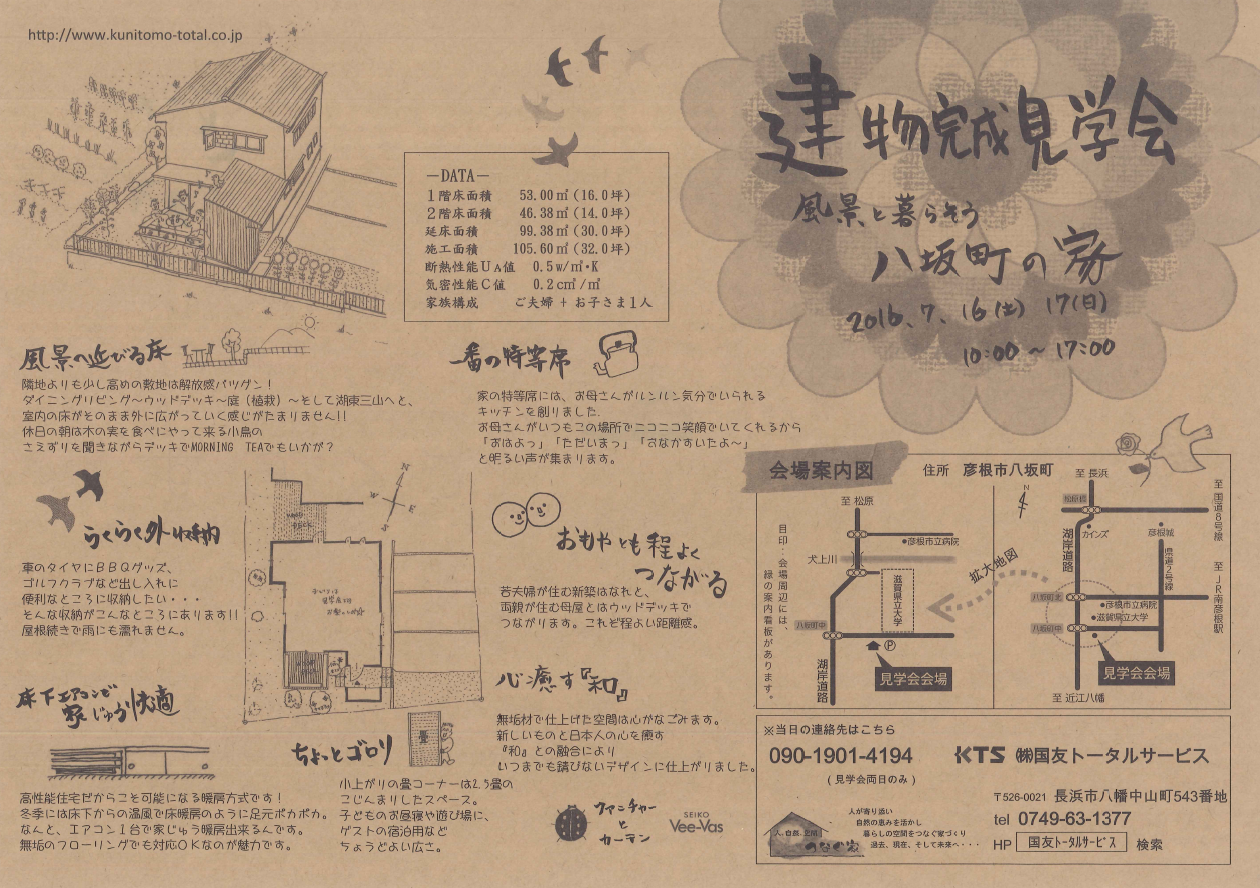 http://www.kunitomo-total.co.jp
建物完成見学会
風景と暮らそう
八坂町の家
2016.7.16(土) 17(日)
10:00～17:00
－DATA－
1階床面積 53.00㎡(16.0坪)
2階床面積 46.38㎡(14.0坪)
延床面積 99.38㎡(30.0坪)
施工面積 105.60㎡(32.0坪)
断熱性能UA値 0.5w/㎡・K
気密性能C値 0.2c㎡/㎡
家族構成 ご夫婦 + お子さま1人
風景へ延びる床
隣地よりも少し高めの敷地は解放感バツグン！
ダイニングリビング～ウッドデッキ～庭（植栽）～そして湖東三山へと、
室内の床がそのまま外に広がっていく感じがたまりません!!
休日の朝は木の実を食べにやって来る小鳥の
さえずりを聞きながらデッキでMORNING TEAでもいかが？
一番の特等席
家の特等席には、お母さんがルンルン気分でいられる
キッチンを創りました。
お母さんがいつもこの場所でニコニコ笑顔でいてくれるから
「おはよっ」「ただいまっ」「おなかすいたよ～」
と明るい声が集まります。
らくらく外収納
車のタイヤにＢＢＱグッズ、
ゴルフクラブなど出し入れに
便利なところに収納したい・・・
そんな収納がこんなところにあります!!
屋根続きで雨にも濡れません。
N
W
E
S
おもやとも程よく
つながる
若夫婦が住む新築はなれと、
両親が住む母屋とはウッドデッキで
つながります。これぞ程よい距離感。
床下エアコンで
家じゅう快適
高性能住宅だからこそ可能になる暖房方式です！
冬季には床下からの温風で床暖房のように足元ポカポカ。
なんと、エアコン１台で家じゅう暖房出来るんです。
無垢のフローリングでも対応ＯＫなのが魅力です。
ちょっとゴロリ
畳
小上がりの畳コーナーは2.5畳の
こじんまりしたスペース。
子どものお昼寝や遊び場に、
ゲストの宿泊用など
ちょうどよい広さ。
心癒す『和』
無垢材で仕上げた空間は心がなごみます。
新しいものと日本人の心を癒す
『和』との融合により
いつまでも錆びないデザインに仕上がりました。
ヴァンチャー
と
カーテン
SEIKO
Vee-Vas
会場案内図
住所 彦根市八坂町
目印：会場周辺には
緑の案内看板があります。
至 松原
彦根市立病院
犬上川
滋賀県立大学
八坂町中
Ⓟ
見学会会場
湖岸道路
拡大地図
N
至 長浜
松原橋
カインズ
彦根城
湖岸道路
県道2号線
至 国道8号線
至 JR南彦根駅
八坂町北
彦根市立病院
滋賀県立大学
八坂町中
見学会会場
至 近江八幡
※当日の連絡先はこちら
090-1901-4194
（見学会両日のみ）
KTS ㈱国友トータルサービス
〒526-0021 長浜市八幡中山町543番地
tel 0749-63-1377
HP 国友トータルサービス 検索
人、自然、土間
つなぐ家
人が寄り添い
自然の恵みを活かし
暮らしの空間をつなぐ家づくり
過去、現在、そして未来へ・・・